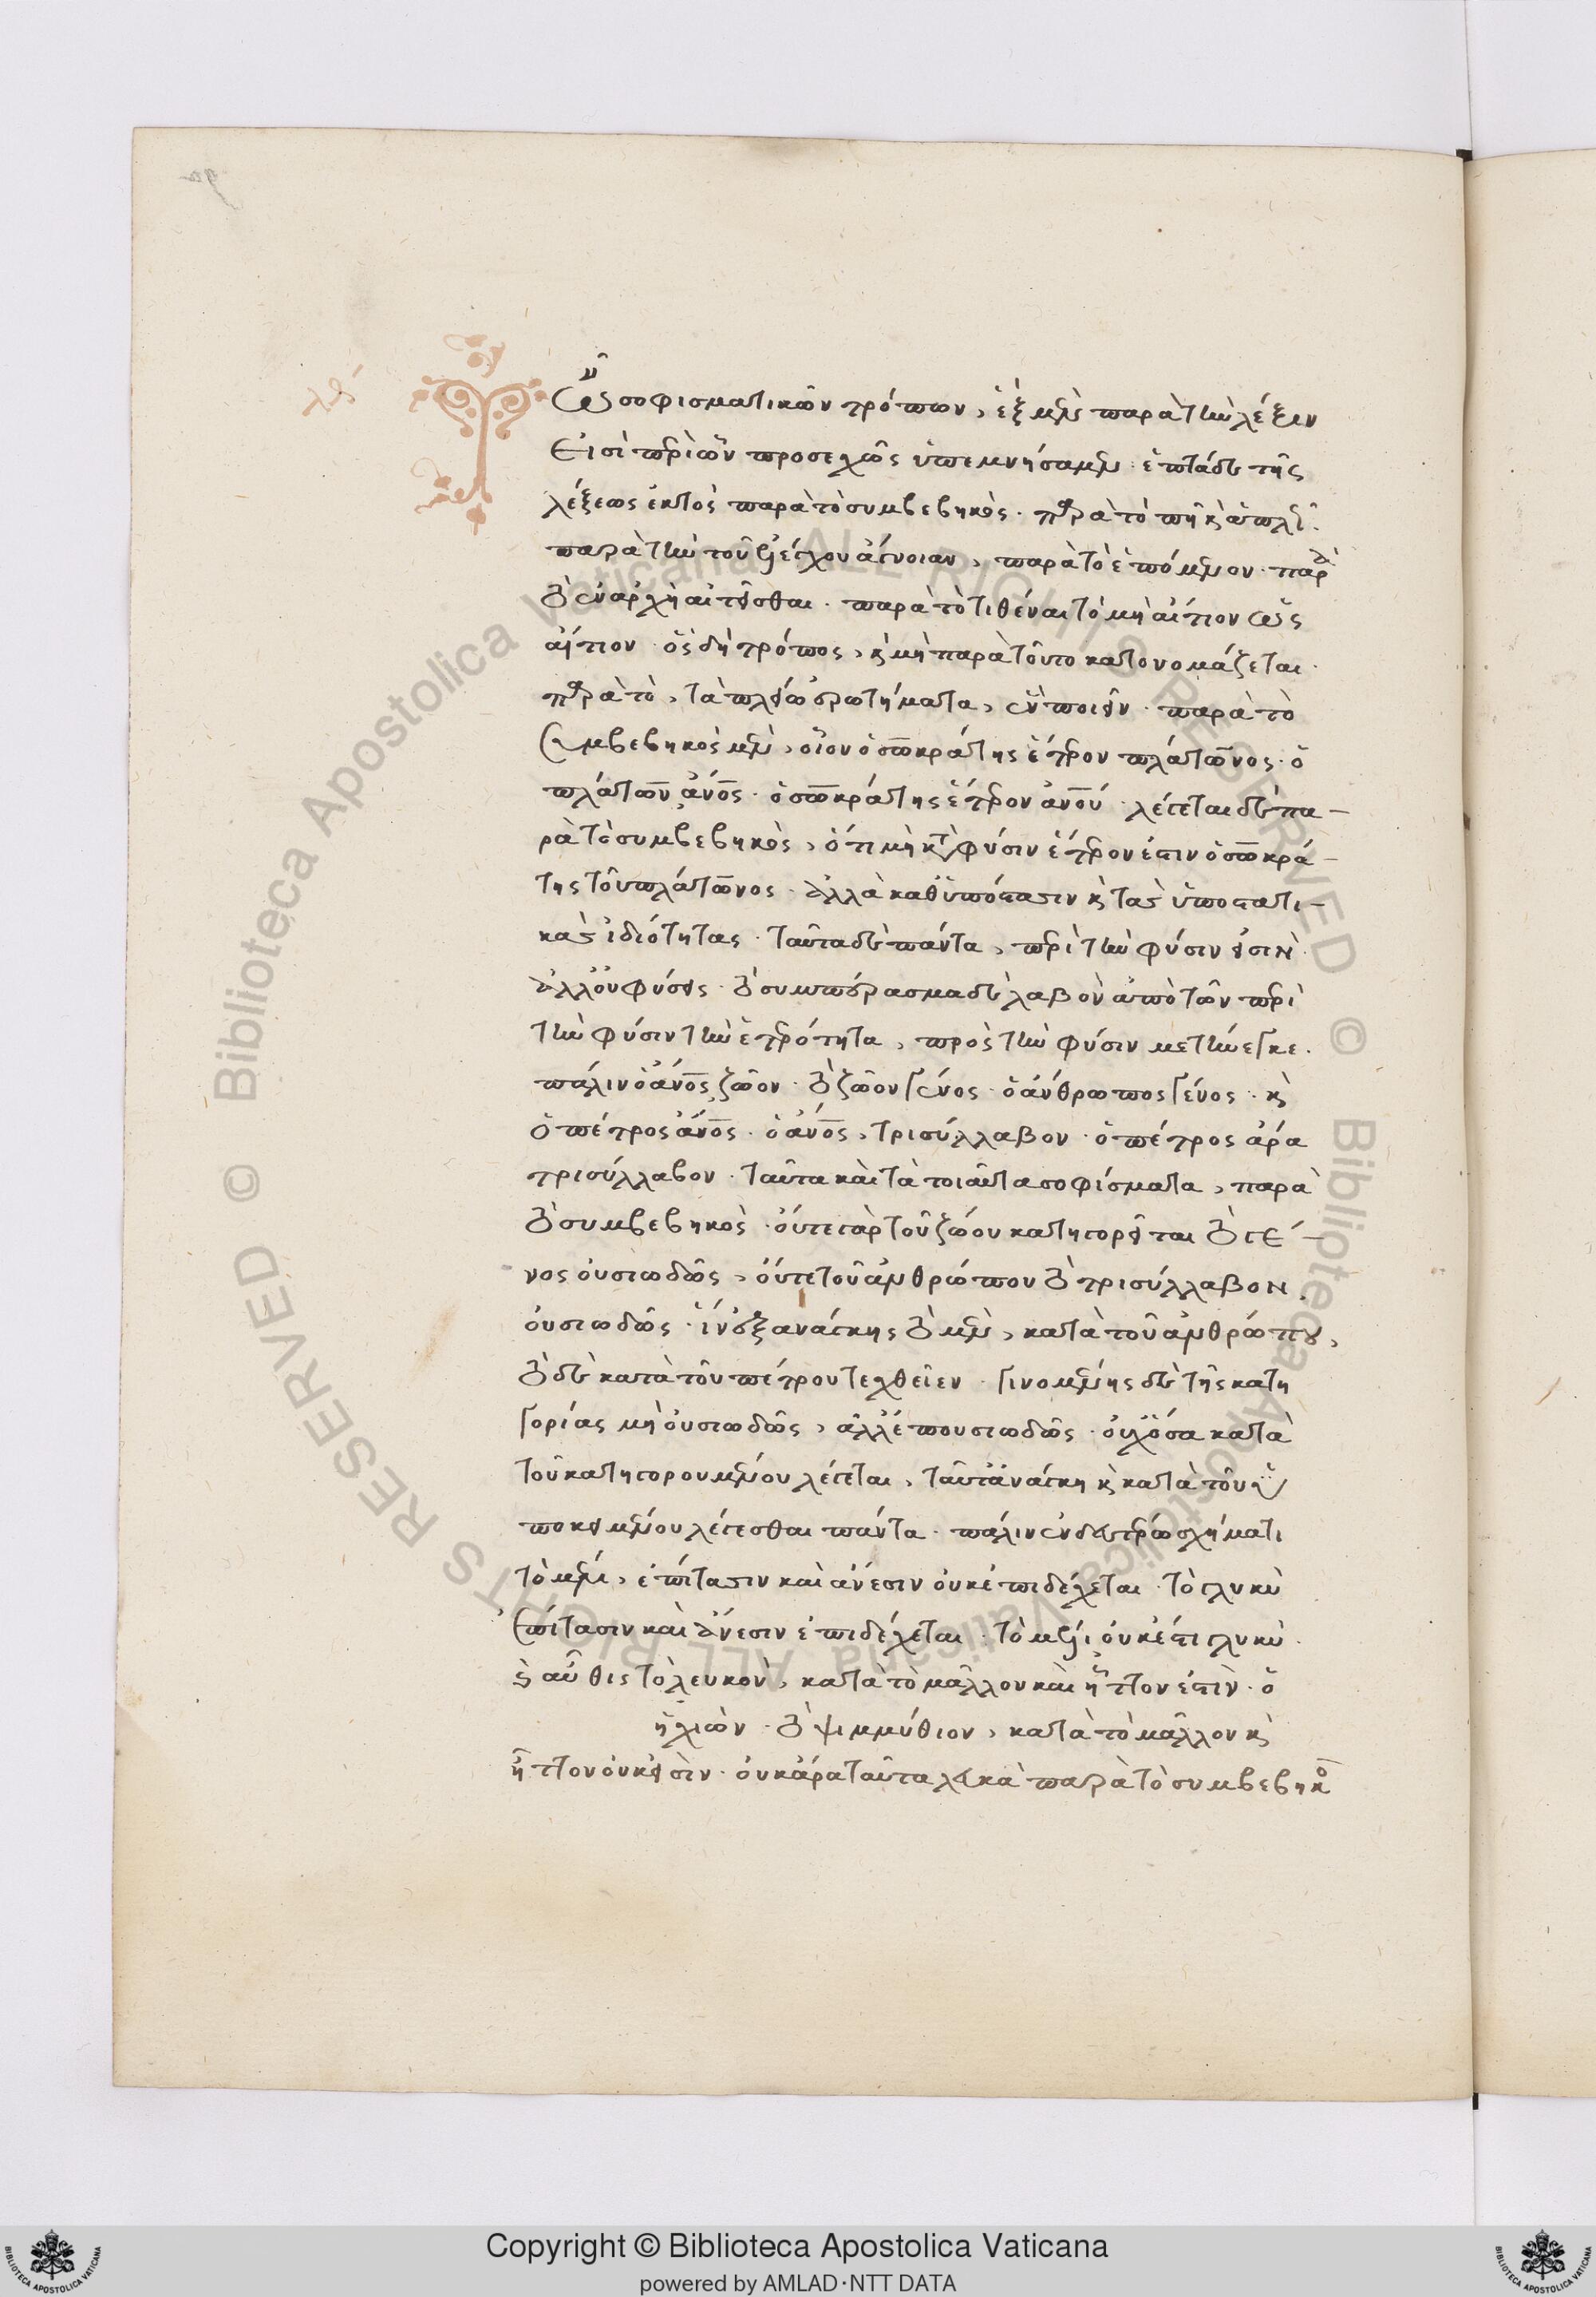 λδ
Τῶν σοφισματικῶν τρόπων, ἓξ μὲν παρὰ τὴν λέξιν
εἰσὶ περὶ ὧν προσεχῶς ὑπεμνήσαμεν· ἑπτὰ δὲ τῆς
λέξεως ἐκτὸς παρὰ τὸ συμβεβηκὸς· παρὰ τὸ πῆ κ ἁπλῶς·
παρὰ τὴν τοῦ ἐλέγχου ἄγνοιαν, παρὰ τὸ ἑπόμενον· παρὰ
τὸ ἐν ἀρχῇ αἰτεῖσθαι· παρὰ τὸ τιθέναι τὸ μὴ αἴτιον ὡς
αἴτιον· ὃς δὴ τρόπος, κ μὴ παρὰ τοῦτο κατονομάζεται·
παρὰ τὸ, τὰ πλείω ἐρωτήματα, ἓν ποιεῖν· παρὰ τὸ
συμβεβηκὸς μὲν, οἷον ὁ σωκράτης ἕτερον πλάτωνος· ὁ
πλάτων ἄνος· ὁ σωκράτης ἕτερον ἀνου· λέγεται δὲ πα-
ρὰ τὸ συμβεβηκὸς, ὅτι μὴ κατὰ φύσιν ἕτερον ἐστιν ὁ σωκρά-
της τοῦ πλάτωνος· ἀλλὰ καθ' ὑπόστασιν κ τὰς ὑποστατι-
κὰς ἰδιότητας· ταῦτα δὲ πάντα, περὶ τὴν φύσιν εἰσὶν·
ἀλλ' οὐ φύσεις· τὸ συμπέρασμα δὲ λαβὸν ἀπὸ τῶν περὶ
τὴν φύσιν τὴν ἑτερότητα, πρὸς τὴν φύσιν μετήνεγκε·
πάλιν ὁ ἄνος ζῶον· τὸ ζῶον γένος· ὁ ἄνθρωπος γένος· κ
ὁ πέτρος ἄνος· ὁ ἄνος, τρισύλλαβον· ὁ πέτρος ἄρα
τρισύλλαβον· ταῦτα καὶ τὰ τοιαῦτα σοφίσματα, παρὰ
τὸ συμβεβηκὸς· οὔτε γὰρ τοῦ ζώου κατηγορεῖται τὸ γέ-
νος οὐσιωδῶς, οὔτε τοῦ ἀνθρώπου τὸ τρισύλλαβον
οὐσιωδῶς· ἵν' ἐξ ἀνάγκης τὸ μὲν, κατὰ τοῦ ἀνθρώπου,
τὸ δὲ κατὰ τοῦ πέτρου λεχθεῖεν· γινομένης δὲ τῆς κατη
γορίας μὴ οὐσιωδῶς, ἀλλ' ἐπουσιωδῶς· οὐχ ὅσα κατὰ
τοῦ κατηγορουμένου λέγεται, ταῦτ' ἀνάγκη κ κατὰ τοῦ ὑ
ποκειμένου λέγεσθαι πάντα· πάλιν ἐν δευτέρω σχήματι
τὸ μέλι, ἐπίτασιν καὶ ἄνεσιν οὐκ ἐπιδέχεται· τὸ γλυκὺ
ἐπίτασιν καὶ ἄνεσιν ἐπιδέχεται· τὸ μέλι οὐκ ἔστι γλυκὺ·
κ αὖθις τὸ λευκὸν, κατὰ τὸ μᾶλλον καὶ ἧττον ἐστὶν· ὁ
ἢ χιὼν· τὸ ψιμμύθιον, κατὰ τὸ μᾶλλον κ
ἧττον οὐκ εἰσὶν· οὐκ ἄρα ταῦτα λευκὰ παρὰ τὸ συμβεβηκὸ